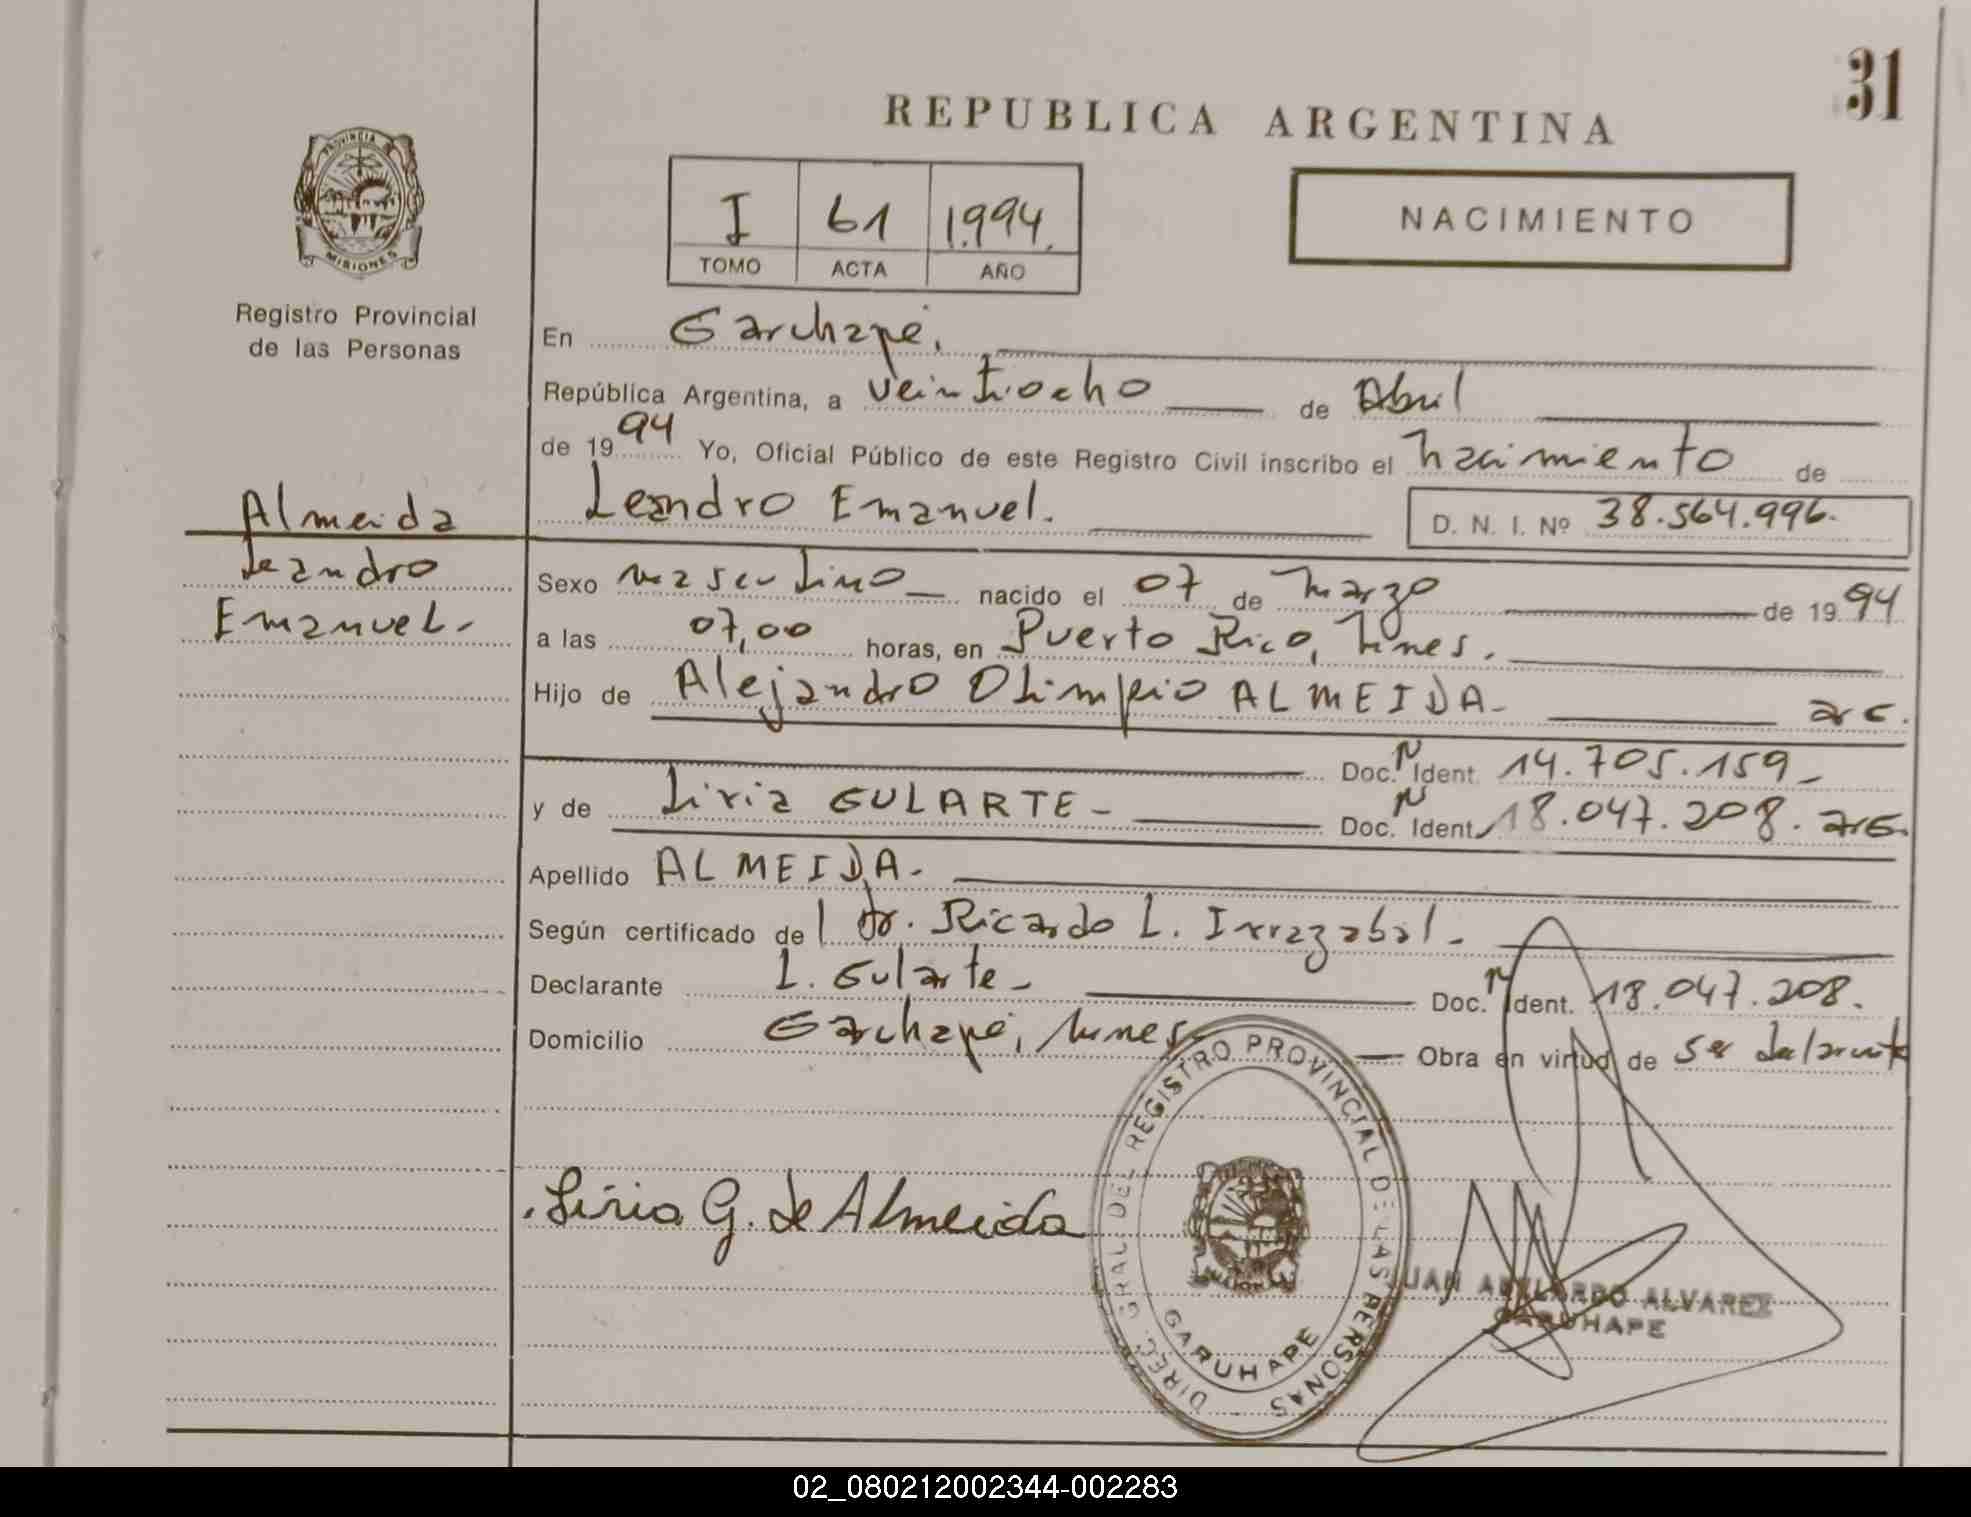 31
REPUBLICA ARGENTINA
PROVINCIA DE
MISIONES
Registro Provincial
de las Personas
I 61 1.994.
TOMO ACTA AÑO
NACIMIENTO
En Garuhapé,
República Argentina, a veintiocho de Abril
de 1994 Yo, Oficial Público de este Registro Civil inscribo el nacimiento de
Leandro Emanuel. D. N. I. Nº 38.564.996.
Almeida
Leandro
Emanuel.
Sexo masculino nacido el 07 de marzo de 1994
a las 07,00 horas, en Puerto Rico, Mnes.
Hijo de Alejandro Olimpio ALMEIDA- arg.
Doc. N Ident. 14.705.159-
y de Liria GULARTE- Doc. N Ident. 18.047.208. arg.
Apellido ALMEIDA.
Según certificado del Dr. Ricardo L. Irrazabal.
Declarante L. Gularte- Doc. N Ident. 18.047.208.
Domicilio Garuhapé, Mnes. Obra en virtud de ser declarante
Liria G. de Almeida
DIREC. GRAL DEL REGISTRO PROVINCIAL DE LAS PERSONAS
GARUHAPE
JUAN ABELARDO ALVAREZ
GARUHAPE
02_080212002344-002283